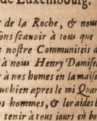 de Luxembourg.
de la Roche, & nous
sons scavoir à tous que
nostre Communitéi
à nous Henry Damise
à nos homes en lamais
uckien apres le mi Qua
s hommes, & les aides
tenir à tous jours en bo